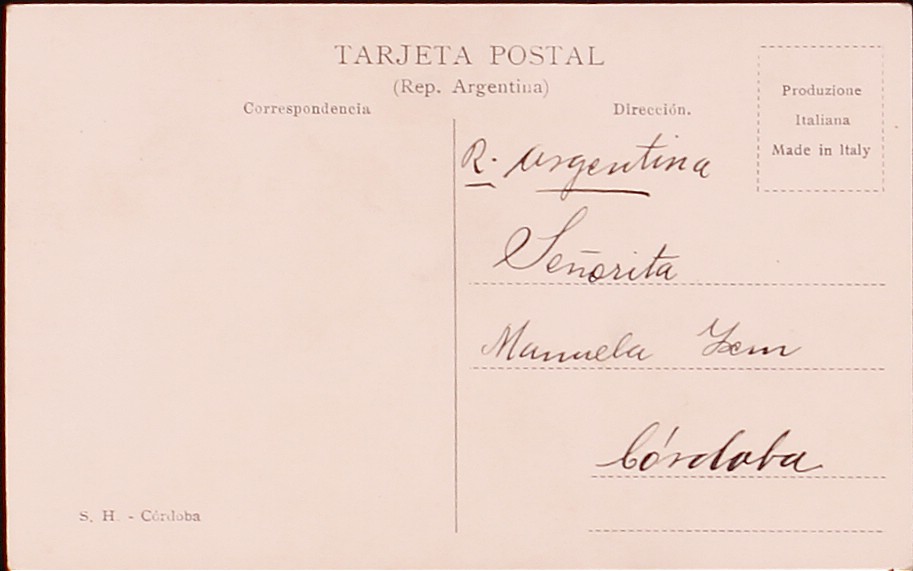 TARJETA POSTAL
(Rep. Argentina)
Correspondencia
Dirección.
Produzione
Italiana
Made in Italy
R. Argentina
Señorita
Manuela
Córdoba
S. H. - Córdoba